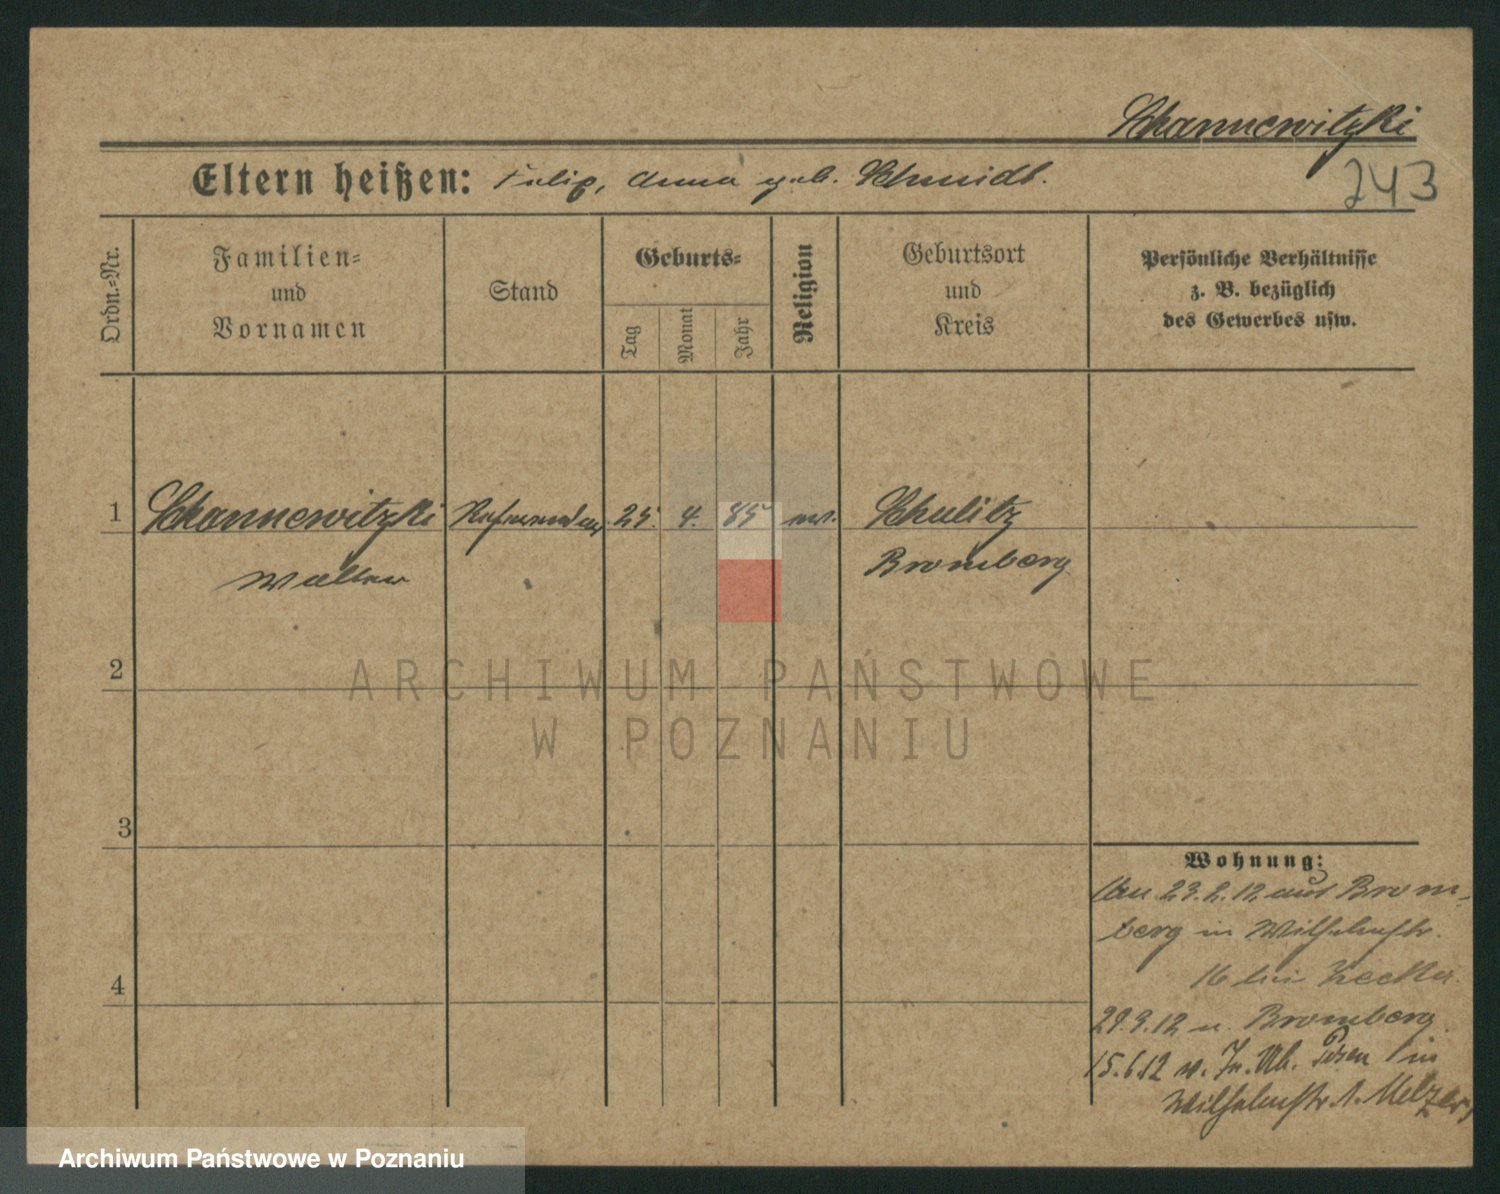 Skannewitzki
Eltern heißen: Felix, Anna geb. Schmidt.
243
Ordn.-Nr.
Familien-
und
Vornamen
Stand
Geburts-
Tag
Monat
Jahr
Religion
Geburtsort
und
Kreis
Persönliche Verhältnisse
z. B. bezüglich
des Gewerbes usw.
1 Skannewitzki Referendar 25. 4. 85 ev. Schulitz
Walter Bromberg
2
3
4
Wohnung:
23.2.12 aus Brom-
berg in Wilhelmstr.
16 bei
29.3.12 n. Bromberg.
15.6.12 v. Posen in
Wilhelmstr. 1. Melzer
ARCHIWUM PAŃSTWOWE
W POZNANIU
Archiwum Państwowe w Poznaniu